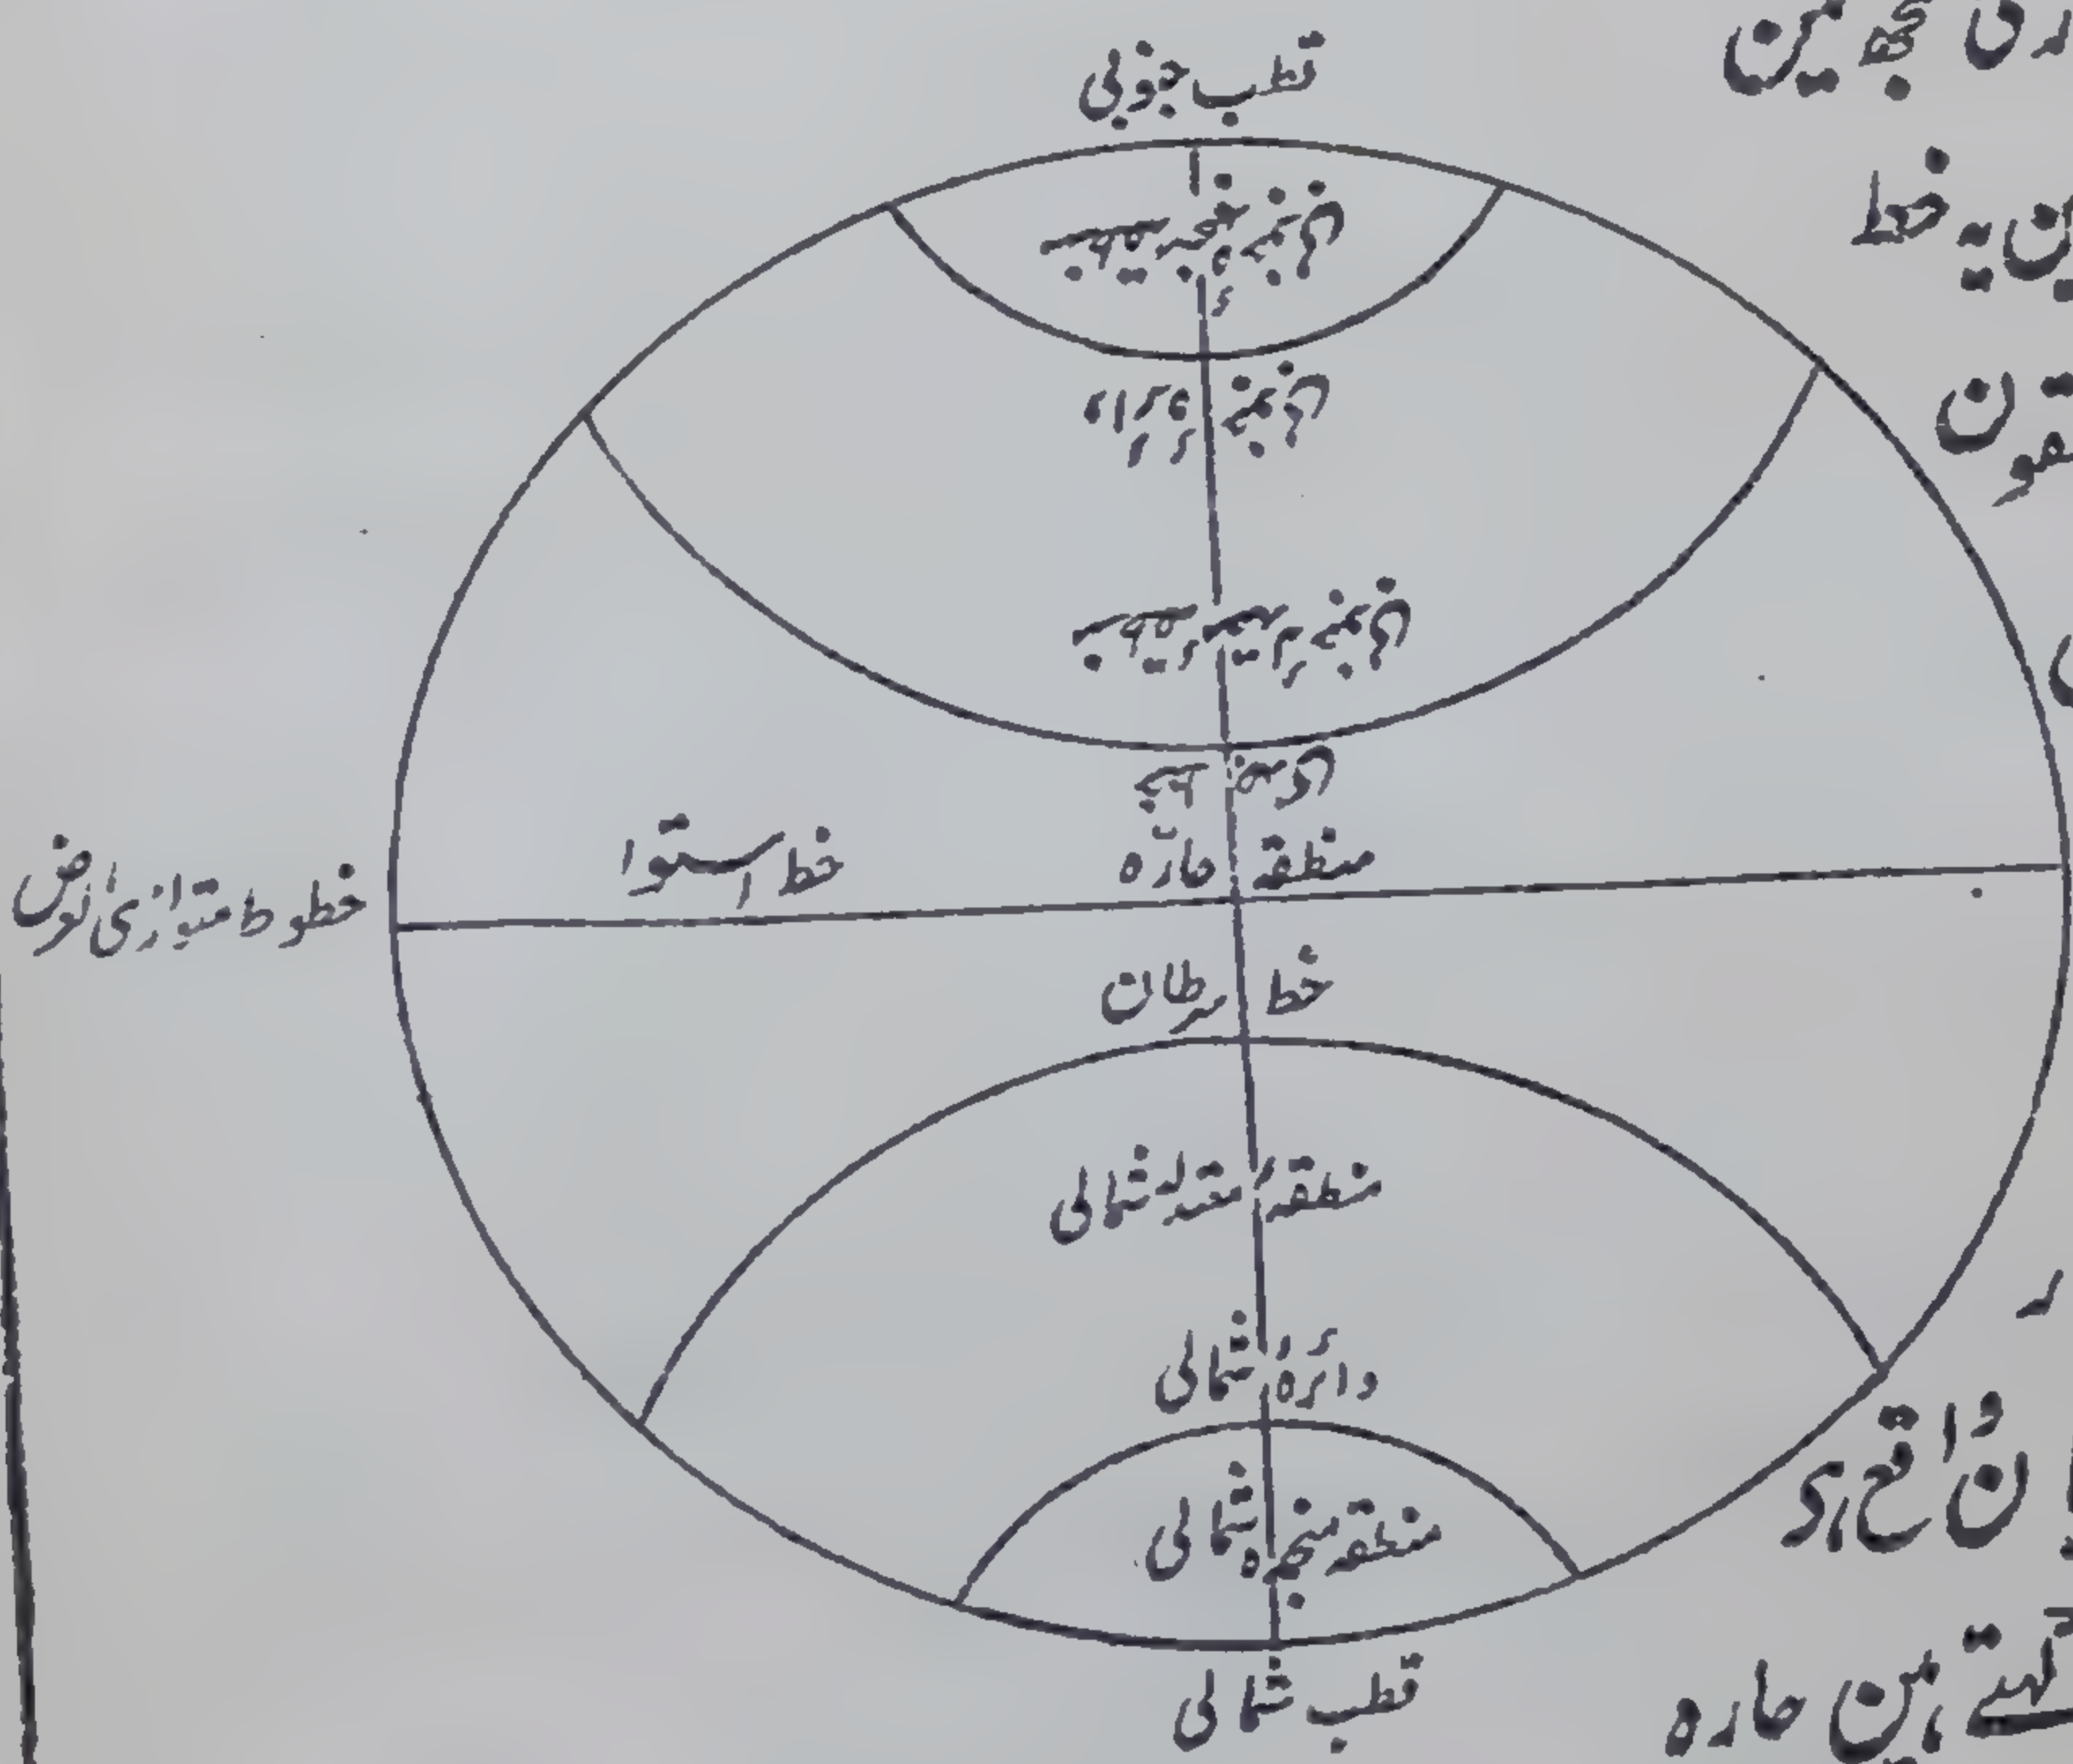 قطب جنوبی
منطقہ منجمدہ جنوبی
دائرہ جنوبی
منطقہ معتدلہ جنوبی
خط جدی
منطقہ حارّہ
خط استوا
خطوط متوازی العرض
خط سرطان
منطقہ معتدلہ شمالی
دائرہ شمالی
منطقہ منجمدہ شمالی
قطب شمالی
یہ خط
کہتے ہین حارہ